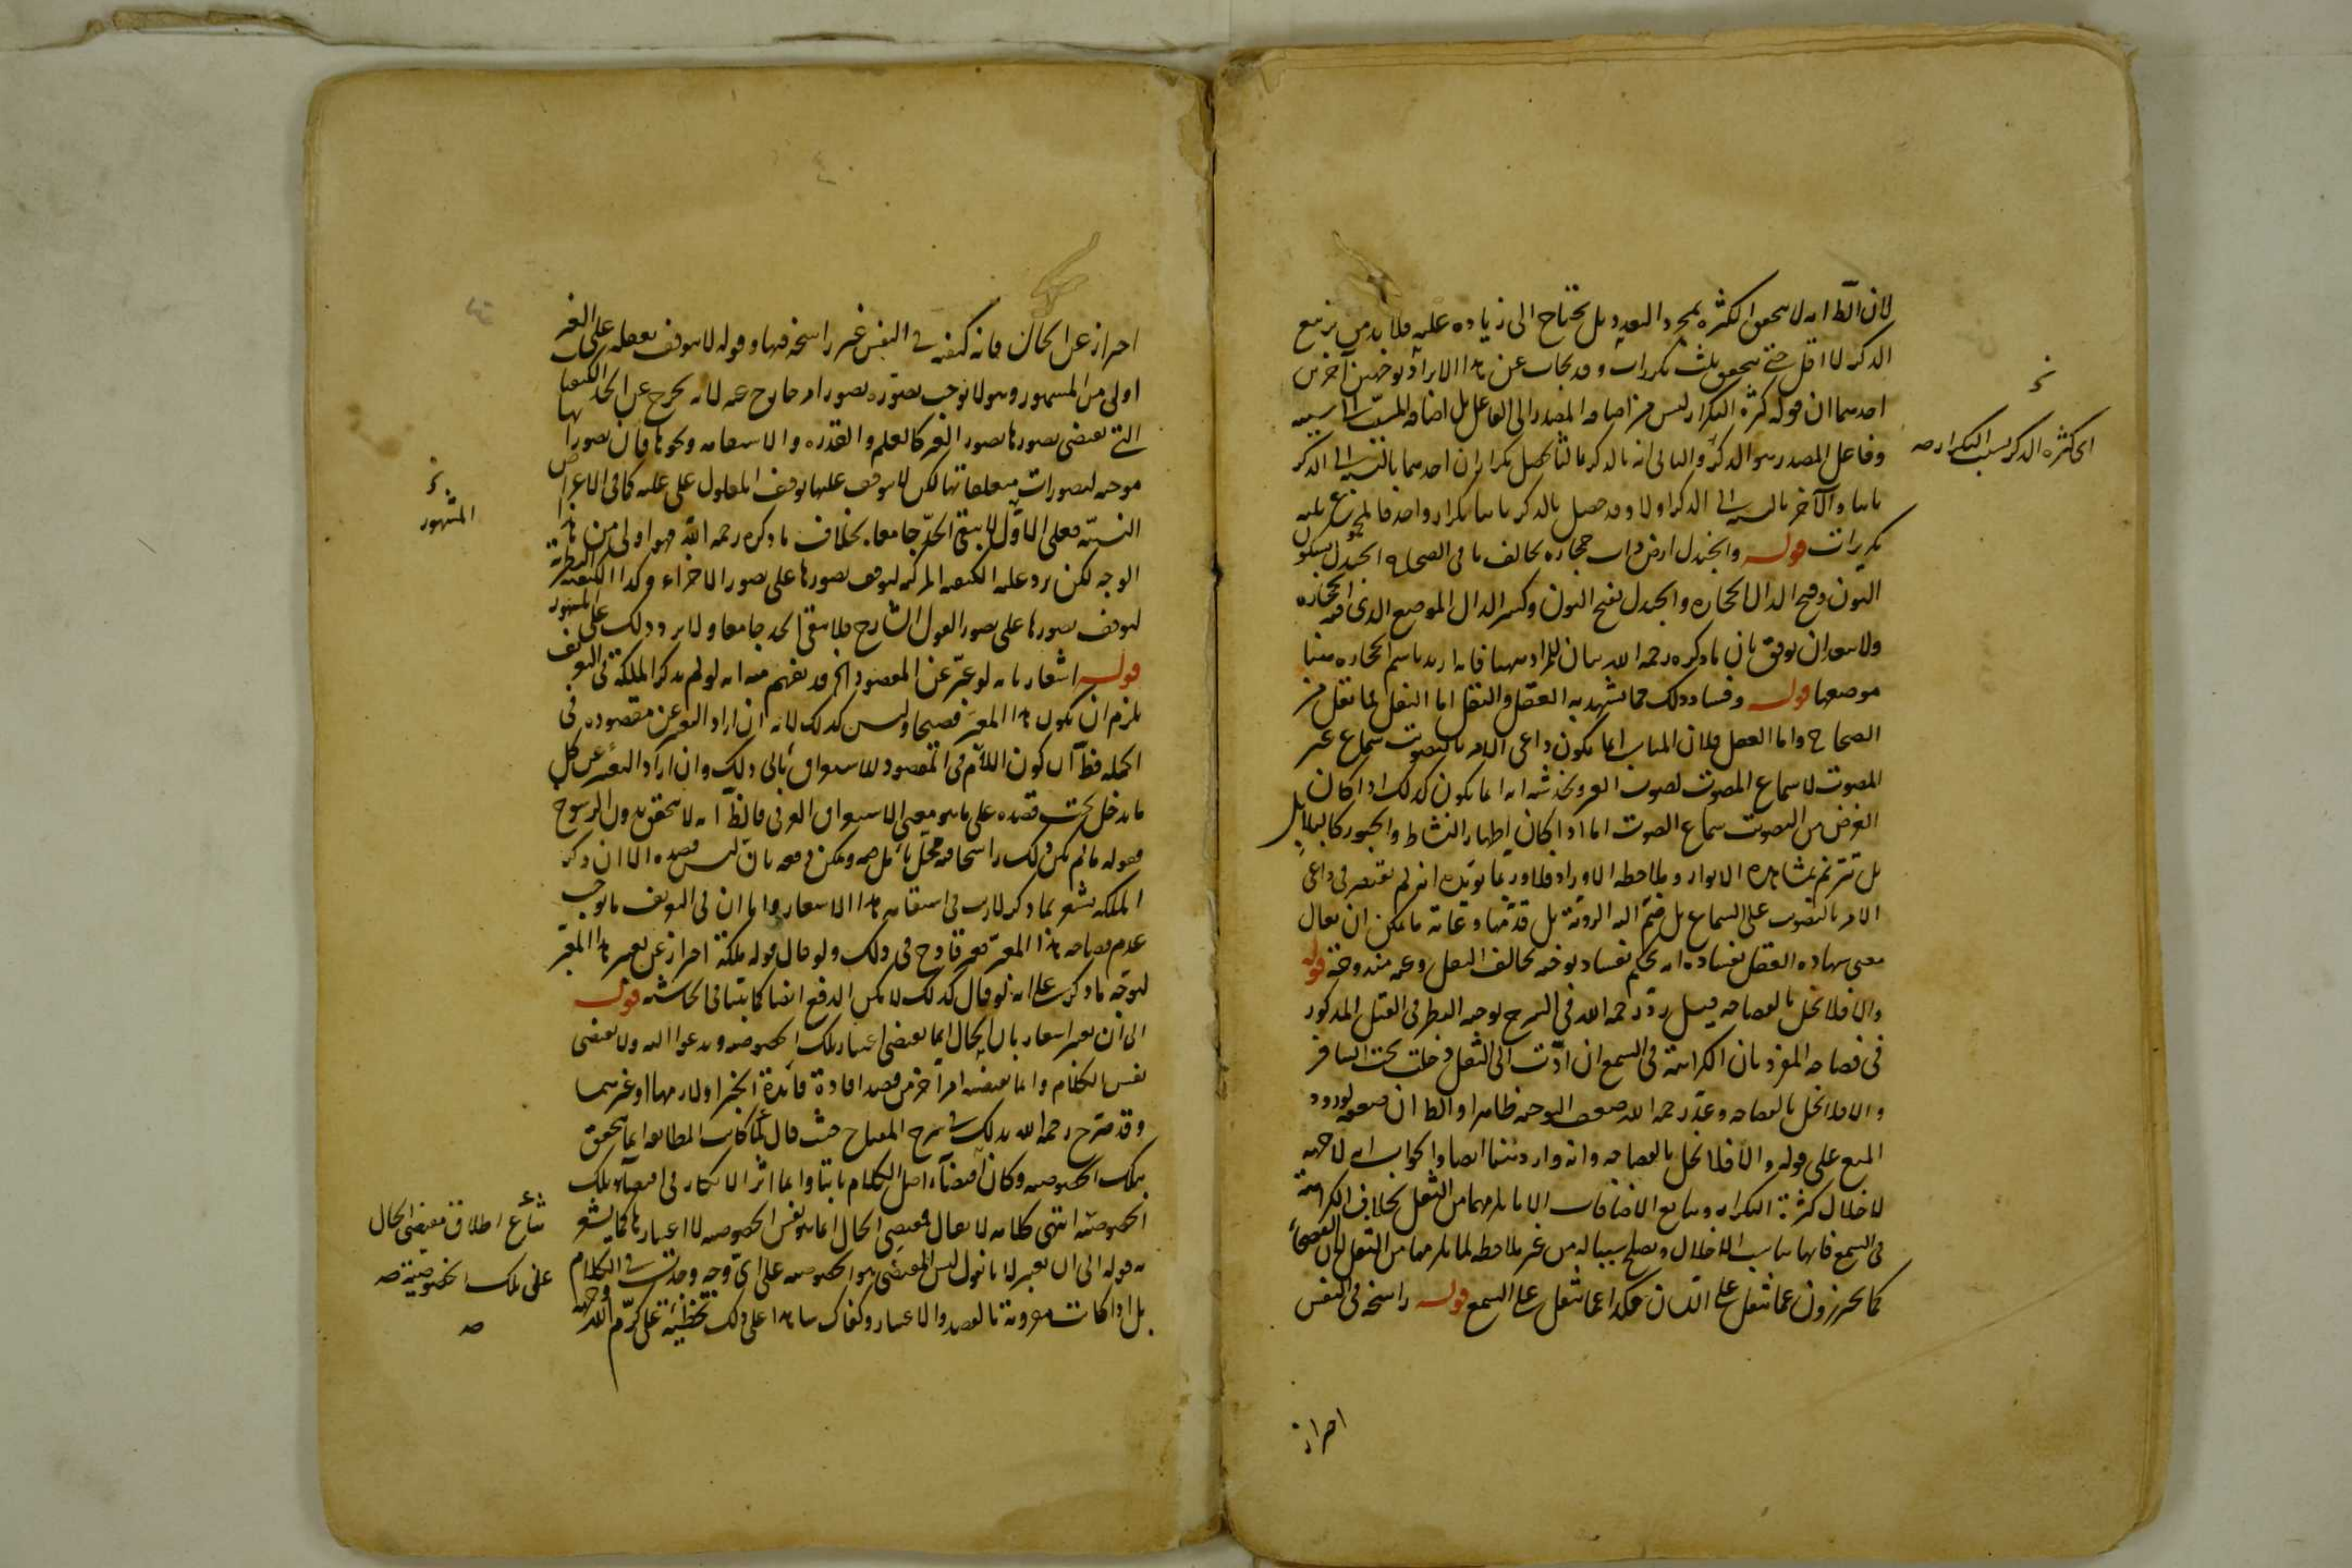 لان الظ انه لا يتحقق الكثرة بمجرد التعدد بل يحتاج الى زيادة عليه فلا بد من تربيع
الذكر لا اقل حتى يتحقق ثلث تكررات وقد يجاب عن هذا الايراد بوجهين آخرين
احدهما ان قوله كثرة التكرار ليس من اضافة المصدر الى الفاعل بل اضافة المسبب الى سببه
وفاعل المصدر هو الذكر والثانى انه بالذكر ثالثا يحصل تكراران احدهما بالنسبة الى الذكر
ثانيا والآخر بالنسبة الى الذكر اولا وقد حصل بالذكر ثانيا تكرار واحد فالمجموع ثلثة
تكريرات قوله والجندل ارض ذات حجارة يخالف ما فى الصحاح الجندل بسكون
النون وفتح الدال الحجارة والجندل بفتح النون وكسر الدال الموضع الذى فيه الحجارة
ولا يبعد ان يوفق بان ما ذكره رحمه الله بيان للمراد ههنا فانه اريد باسم الحجارة ههنا
موضعها قوله وفساد ذلك مما يشهد به العقل والنقل اما النقل فلما نقل من
الصحاح واما العقل فلان المناسب انما يكون داعى الامر بالتصويت سماع غير
المصوت لا سماع المصوت لصوت الغير ويخدشه انه انما يكون كذلك اذا كان
الغرض من التصويت سماع الصوت اما اذا كان اظهار النشاط والحبور كالبلابل
بل تترنم بمشاهدة الانوار وملاحظة الاوراد فلا وربما يؤيده انه لم يقتصر فى داعى
الامر بالتصويت على السماع بل ضم اليه الرؤية بل قدمها وغاية ما يمكن ان يقال
معنى شهادة العقل بفساده انه يحكم بفساد توجيه يخالف النقل وعنه مندوحة قوله
والا فلا يخل بالفصاحة قيل رد رحمه الله فى الشرح بوجه النظر فى القيل المذكور
فى فصاحة المفرد بان الكراهة فى السمع ان ادت الى الثقل دخلت تحت التنافر
والا فلا تخل بالفصاحة وعد رحمه الله ضعف الوجه ظاهرا والظ ان ضعفه لورود
المنع على قوله والا فلا تخل بالفصاحة وانه وارد هنا ايضا والجواب انه لا جهة
لاخلال كثرة التكرار وتتابع الاضافات الا ما يلزمهما من الثقل بخلاف الكراهة
فى السمع فانها تناسب الاخلال وتصلح سببا له من غير ملاحظة لما يلزمها من الثقل لان الفصحاء
كما يحترزون عما يثقل على اللسان هكذا عما يثقل على السمع قوله راسخة فى النفس
احتراز
اى كثرة الذكر بسبب التكرار صه
احتراز عن الحال فانه كيفية فى النفس غير راسخة فيها وقوله لا يتوقف تعقله على الغير
اولى من المشهور وهو لا يوجب تصوره تصور امر خارج عنه لانه يخرج عن الحد الكيفيات
التى يقتضى تصورها تصور الغير كالعلم والقدرة والاستقامة ونحوها فان تصوراتها
موجبة لتصورات متعلقاتها لكن لا يتوقف عليها توقف المعلول على علته كما فى الاعراض
النسبية فعلى الاول لا يبقى الحد جامعا بخلاف ما ذكره رحمه الله فهو اولى من هذا
الوجه لكن يرد عليه الكيفية المركبة لتوقف تصورها على تصور الاجزاء وكذا الكيفية النظرية
لتوقف تصورها على تصور القول الشارح فلا يبقى الحد جامعا ولا يرد ذلك على المشهور
قوله اشعار بانه لو عبر عن المقصود الخ قد يفهم منه انه لو لم يذكر الملكة فى التعريف
يلزم ان يكون هذا المعبر فصيحا وليس كذلك لانه ان اراد التعبير عن مقصوده فى
الجملة فظ ان كون اللام فى المقصود للاستغراق يأبى ذلك وان اراد التعبير عن كل
ما يدخل تحت قصده على ما هو معنى الاستغراق العرفى فالظ انه لا يتحقق بدون الرسوخ
فقوله ما لم يكن ذلك راسخا فيه محل تأمل ويمكن دفعه بان ليس قصده الا ان ذكر
الملكة يشعر بما ذكر لا ريب فى استقامة هذا الاشعار واما ان فى التعريف ما يوجب
عدم فصاحة هذا المعبر فغير قادح فى ذلك ولو قال قوله ملكة احتراز عن تعبير هذا المعبر
لتوجه ما ذكر على انه لو قال كذلك لا يمكن الدفع ايضا كما بينا فى الحاشية قوله
الى ان تعبر اشعار بان الحال انما يقتضى اعتبار تلك الخصوصية ويدعو اليه ولا يقتضى
نفس الكلام وانما يقتضيه امر آخر من قصد افادة فائدة الخبر او لازمها او غيرهما
وقد صرح رحمه الله بذلك فى شرح المفتاح حيث قال لما كانت المطابقة انما تتحقق
بتلك الخصوصية وكان اقتضاء اصل الكلام ثابتا وانما اثر الانكار فى اقتضاء تلك
الخصوصية انتهى كلامه لا يقال مقتضى الحال انما هو نفس الخصوصية لا اعتبارها كما يشعر
به قوله الى ان تعبر لانا نقول ليس المقتضى هو الخصوصية على اى وجه وجدت فى الكلام
بل اذا كانت مقرونة بالقصد والاعتبار وكفاك شاهدا على ذلك تخطئة على كرم الله وجهه
المشهور
شائع اطلاق مقتضى الحال
على تلك الخصوصية صه
صه